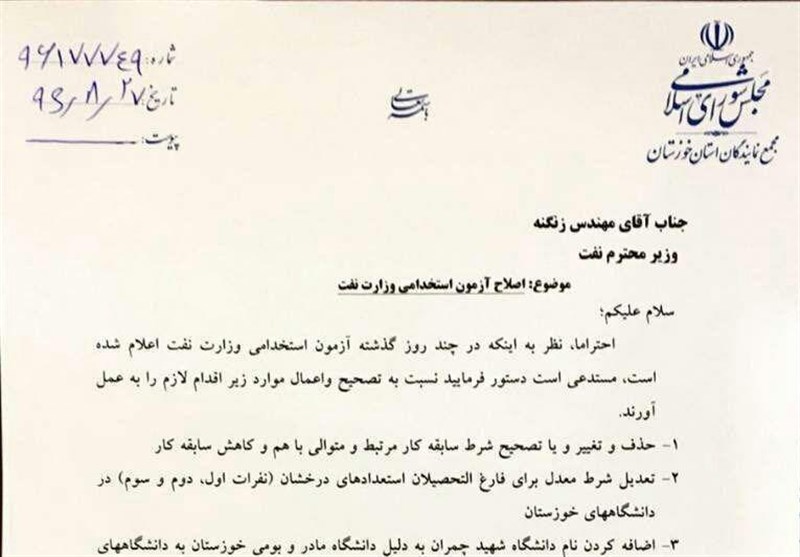 جمهوری اسلامی ایران
مجلس شورای اسلامی
مجمع نمایندگان استان خوزستان
باسمه تعالی
شماره: ۹۶۱۷۷۷۴۹
تاریخ: ۹۶/۸/۲۷
پیوست:
جناب آقای مهندس زنگنه
وزیر محترم نفت
موضوع: اصلاح آزمون استخدامی وزارت نفت
سلام علیکم؛
احتراما، نظر به اینکه در چند روز گذشته آزمون استخدامی وزارت نفت اعلام شده
است، مستدعی است دستور فرمایید نسبت به تصحیح واعمال موارد زیر اقدام لازم را به عمل
آورند.
۱- حذف و تغییر و یا تصحیح شرط سابقه کار مرتبط و متوالی با هم و کاهش سابقه کار
۲- تعدیل شرط معدل برای فارغ التحصیلان استعدادهای درخشان (نفرات اول، دوم و سوم) در
دانشگاههای خوزستان
۳- اضافه کردن نام دانشگاه شهید چمران به دلیل دانشگاه مادر و بومی خوزستان به دانشگاههای